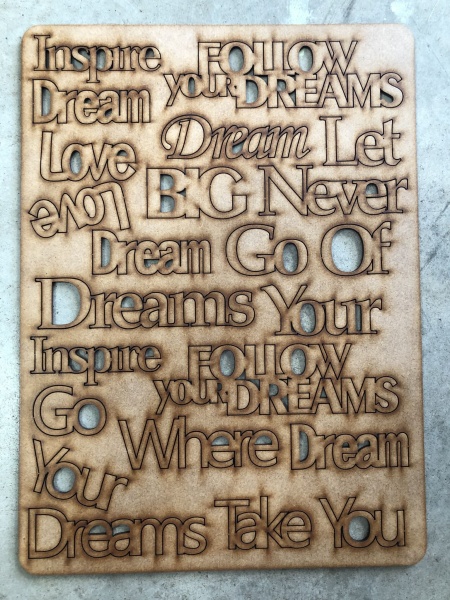 Inspire FOLLOW
your DREAMS
Dream
Dream Let
Love
BIG Never
Love
Dream Go Of
Dreams Your
Inspire FOLLOW
your DREAMS
Go
Where Dream
Your
Dreams Take You